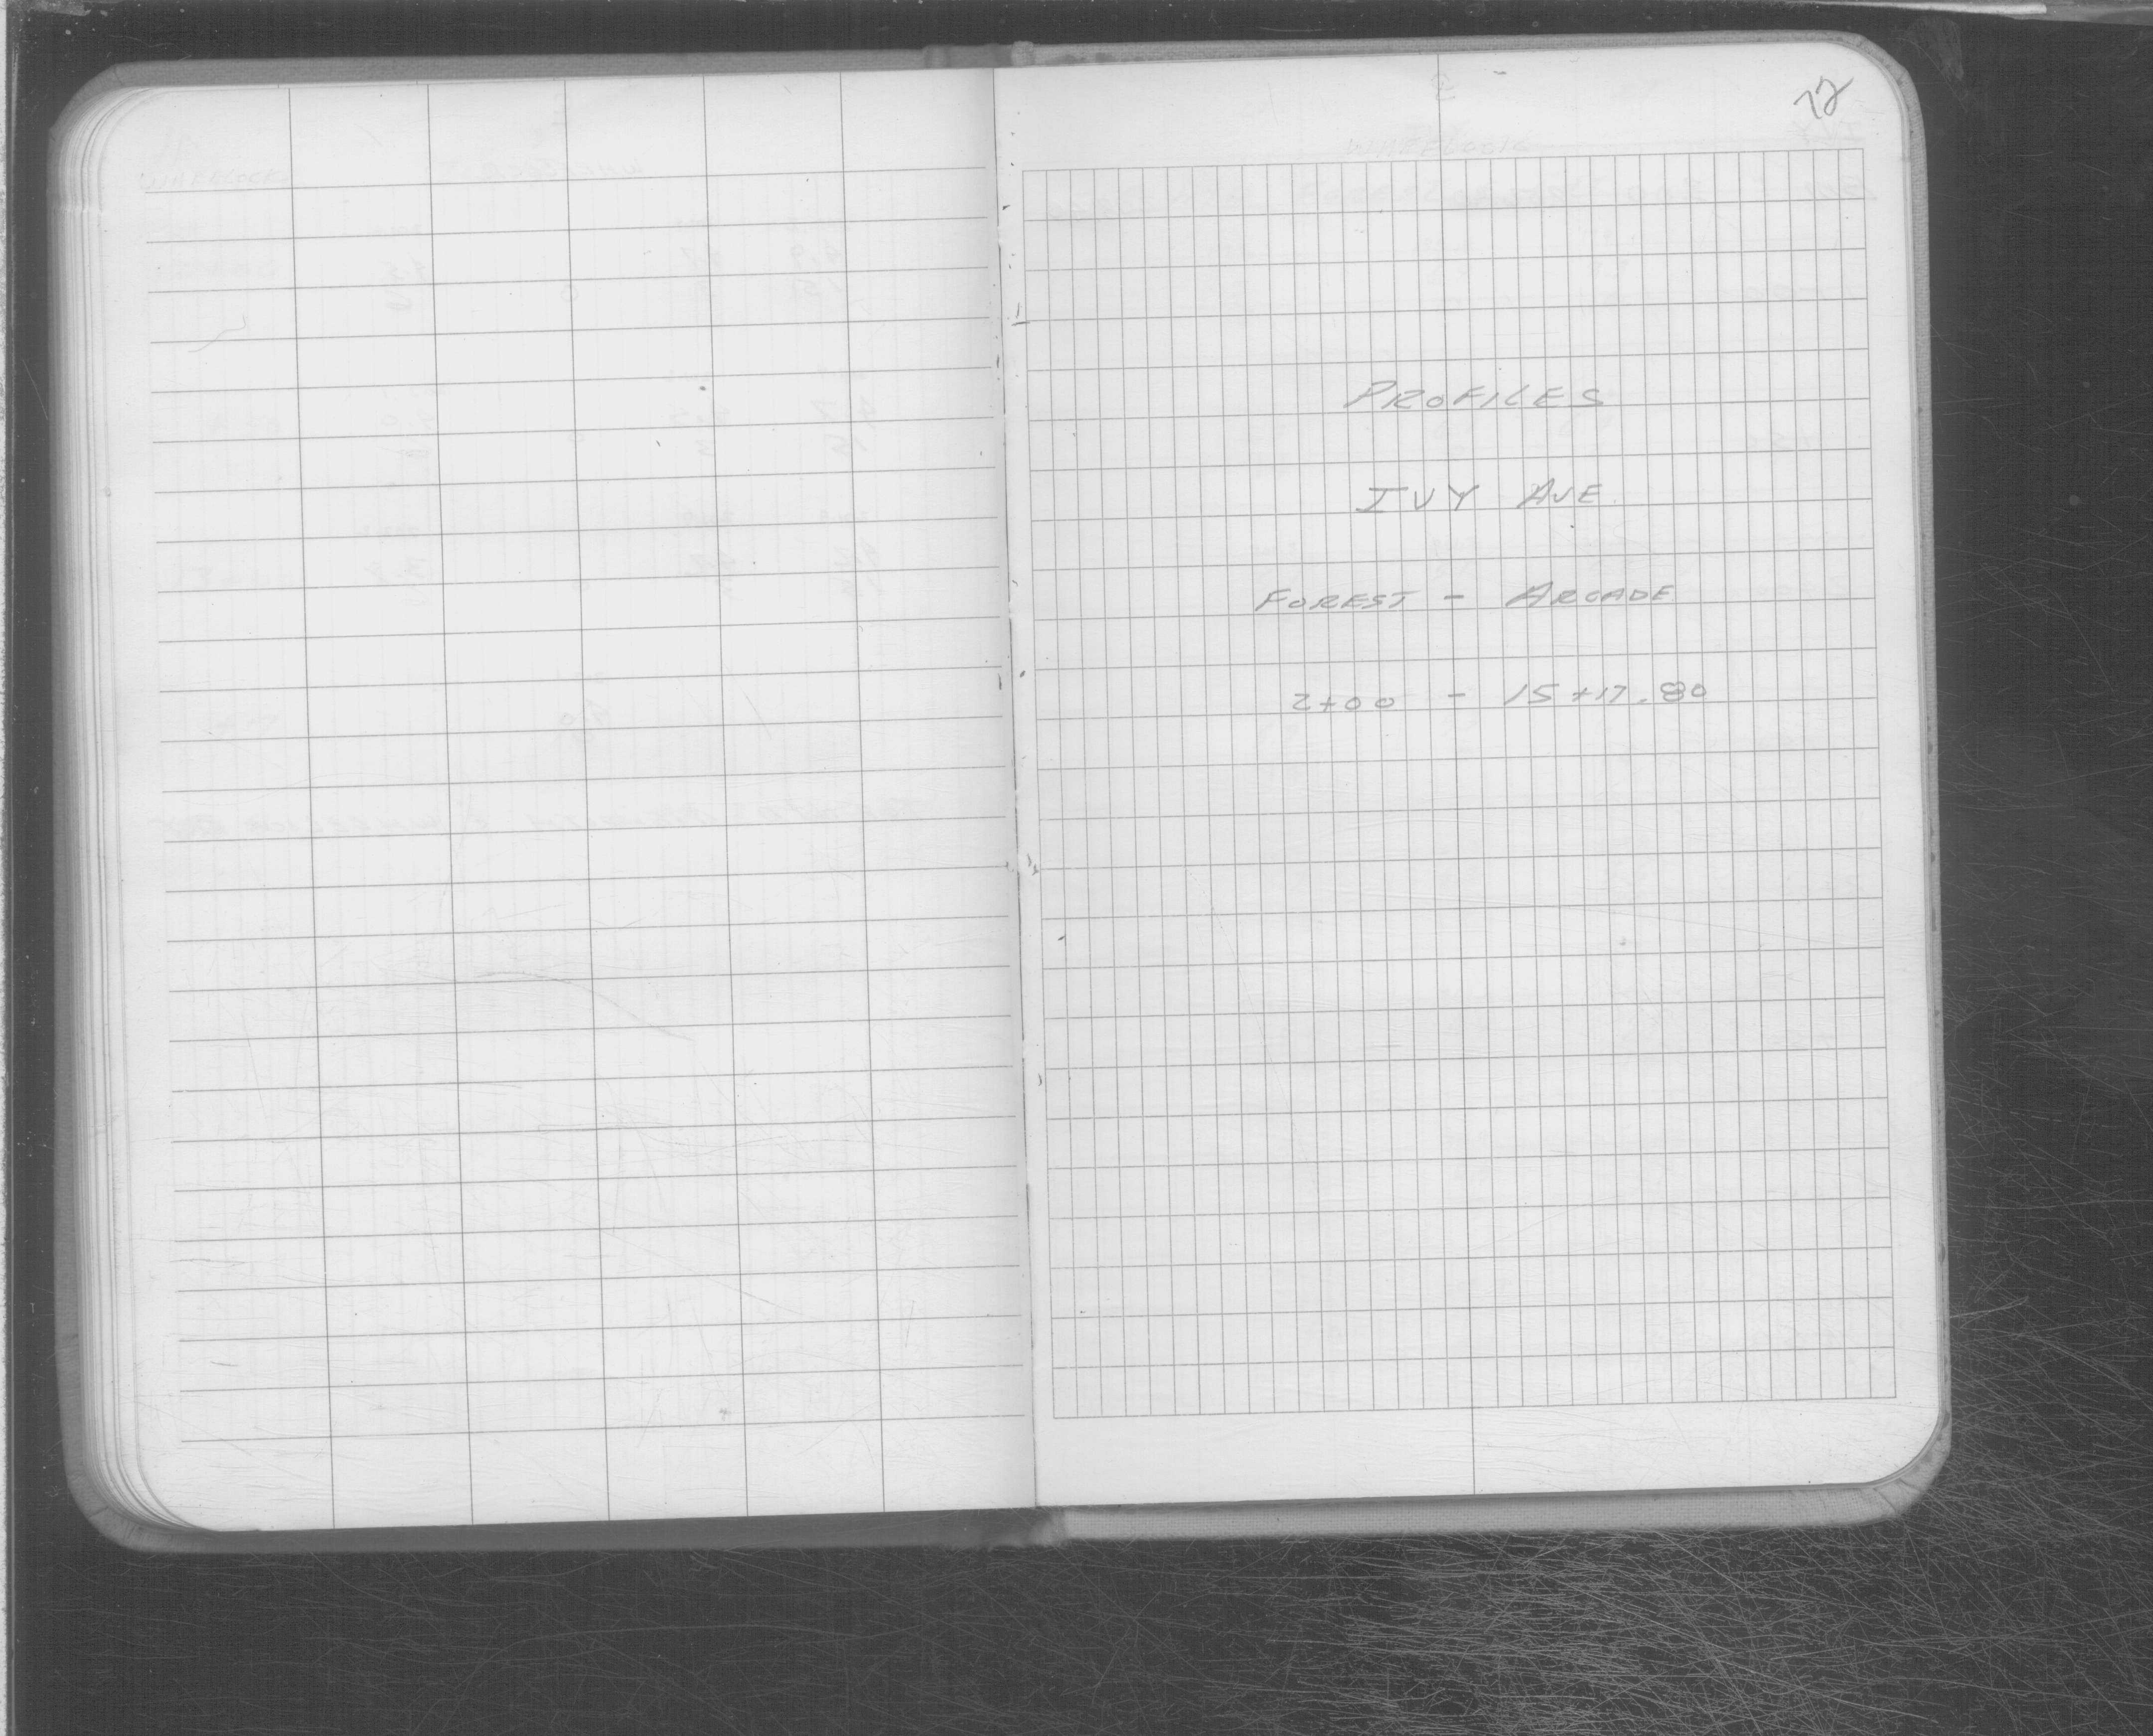 72
PROFILES
IVY AVE.
FOREST - ARCADE
2+00 - 15+17.80